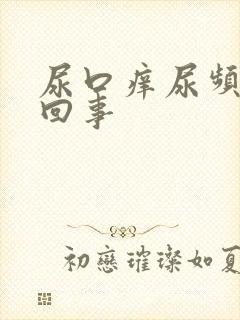 尿口痒尿频
回事
初戀璀璨如夏